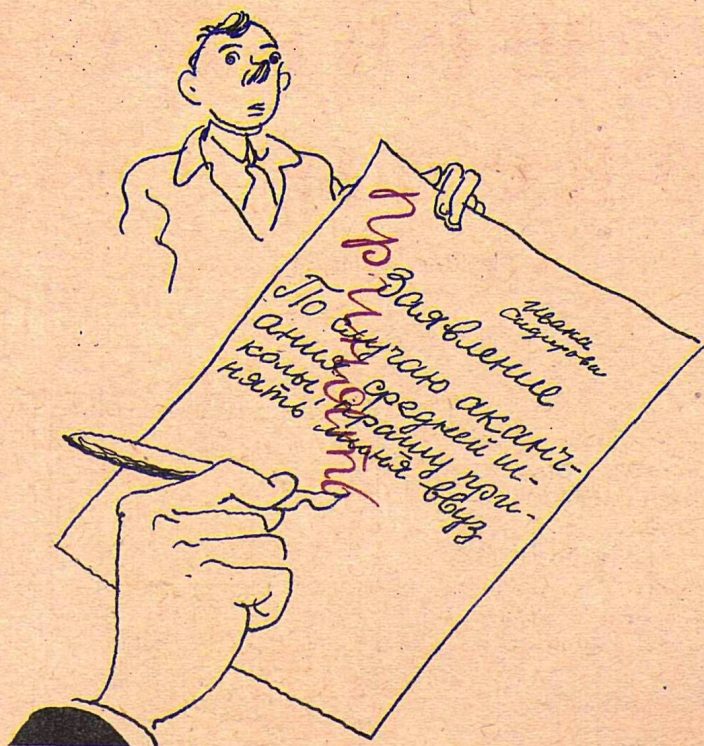 Ивана
Сидирова
Заявление
По случаю аканч-
ания средней ш-
колы, прашу при-
нять миня ввуз